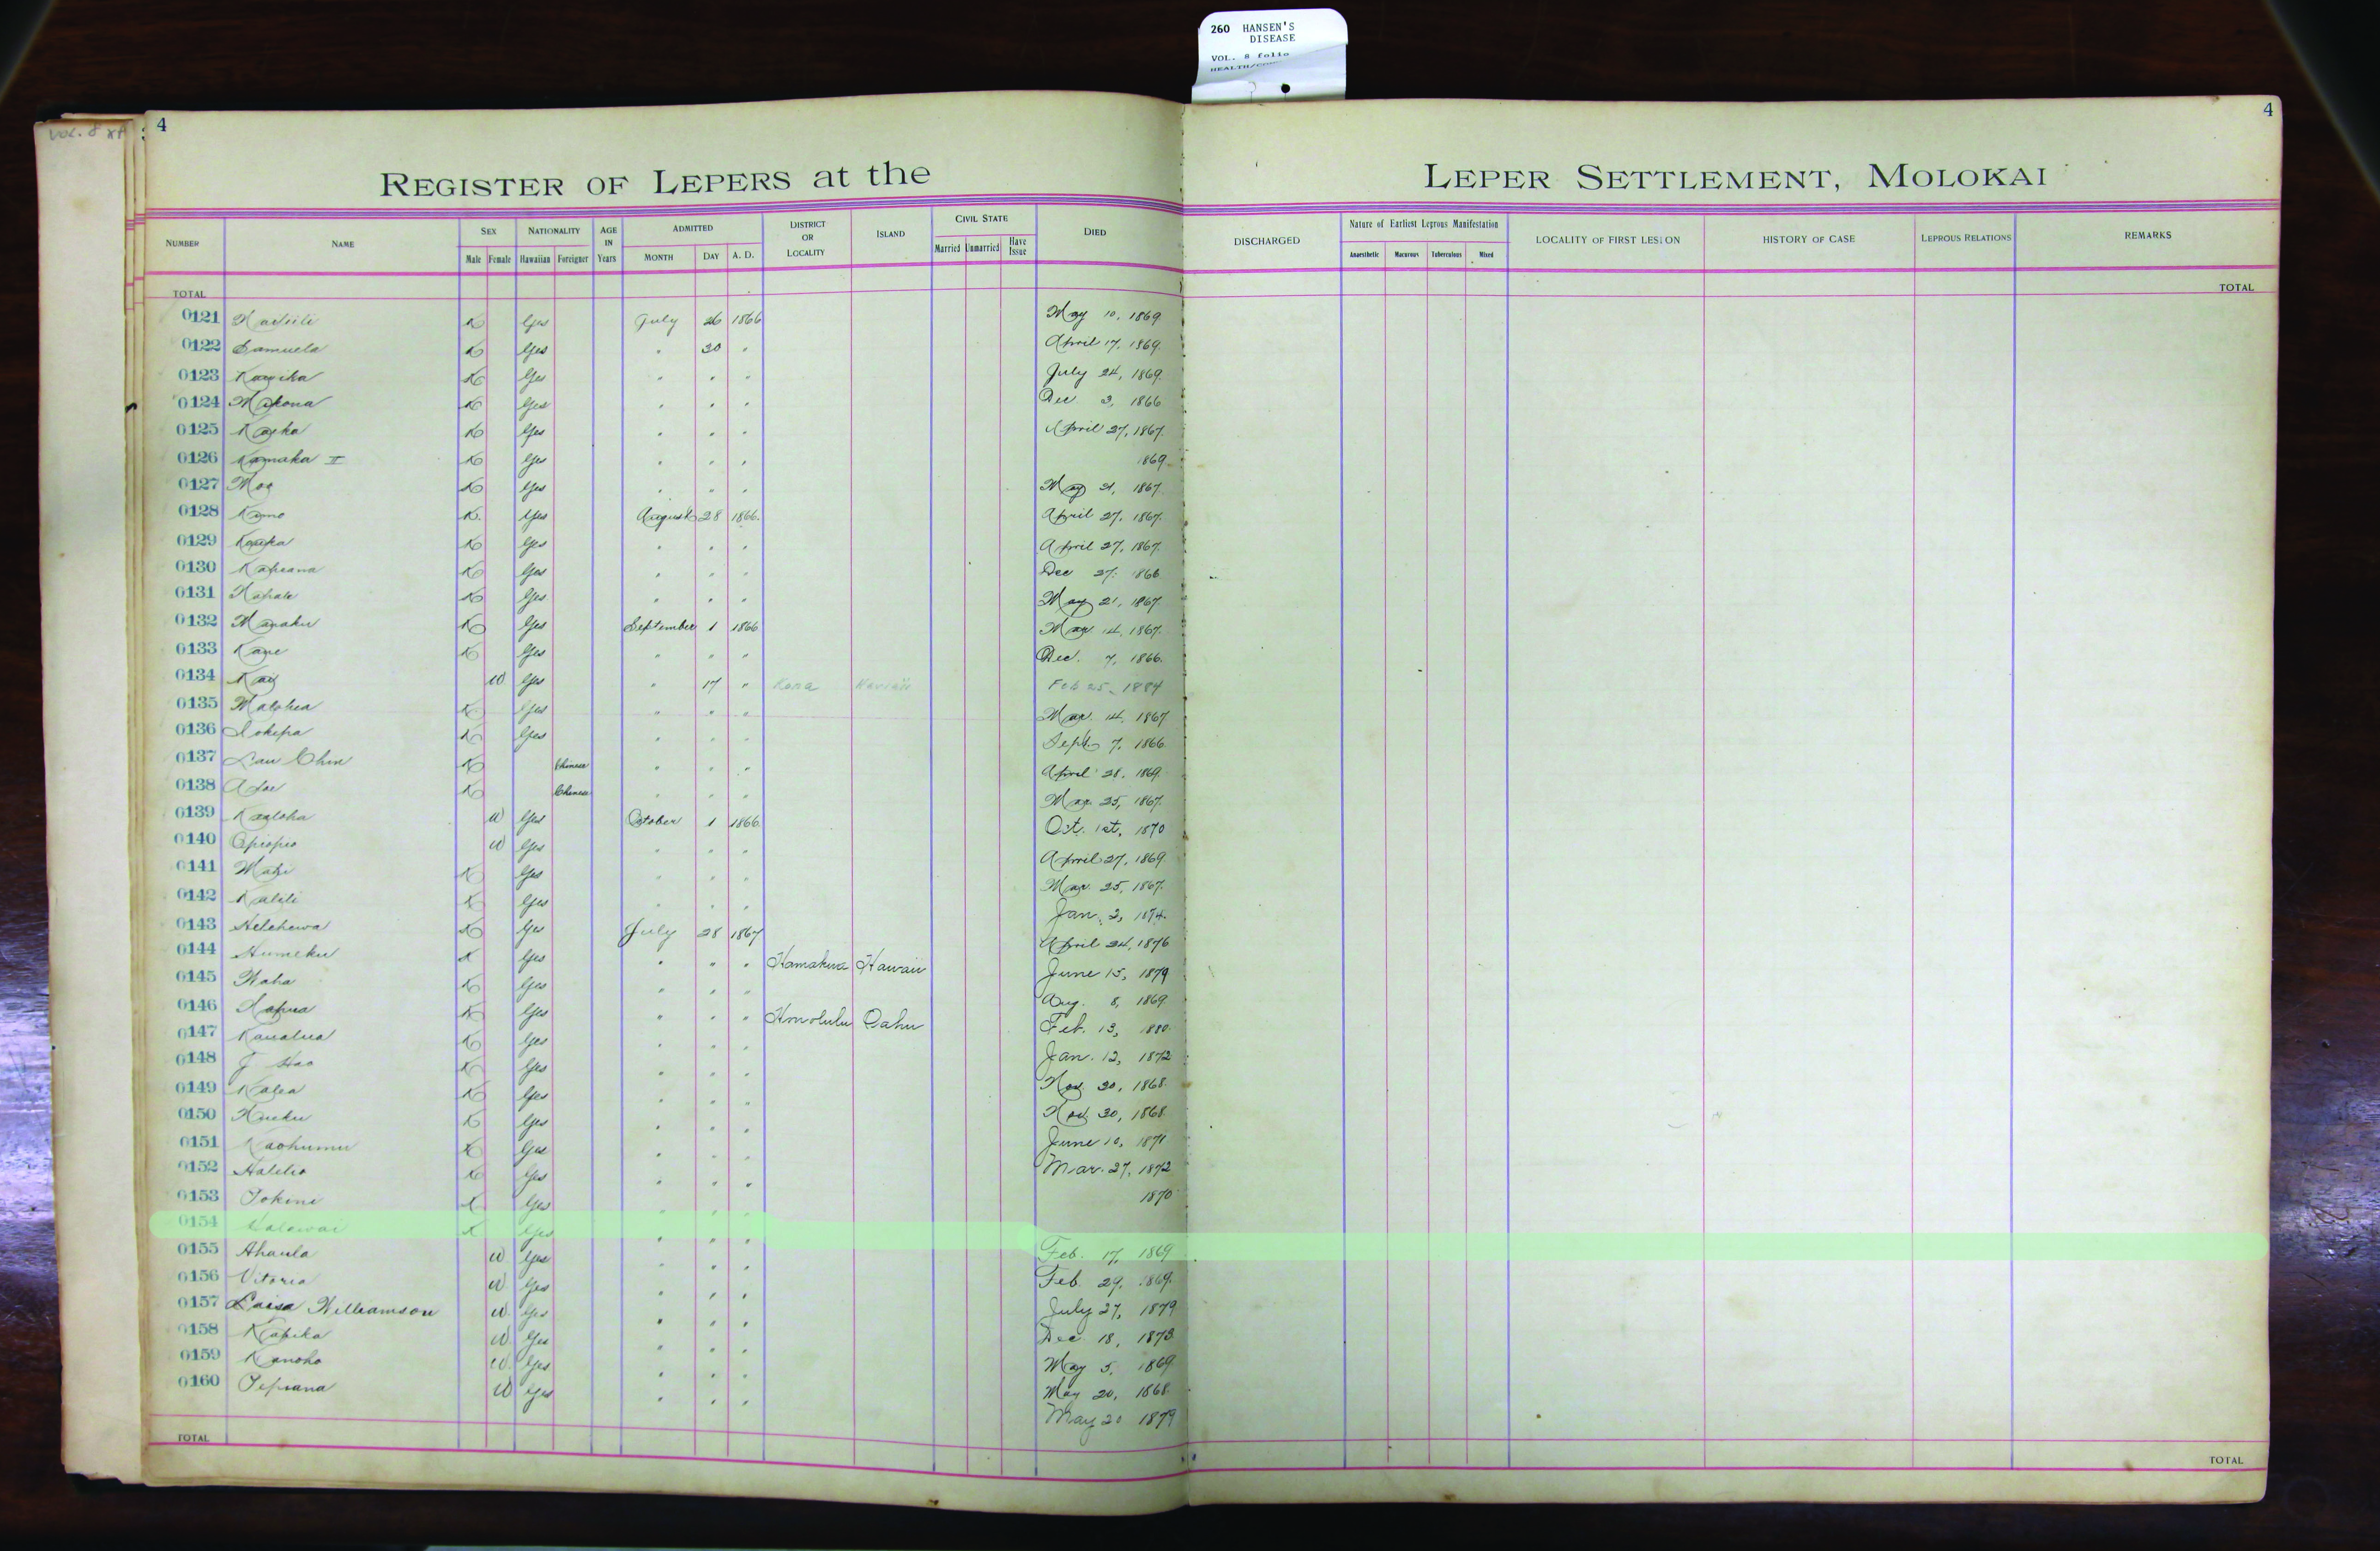 260 HANSEN'S
DISEASE
VOL. 8 folio
VOL. 8
4
4
REGISTER OF LEPERS at the LEPER SETTLEMENT, MOLOKAI
NUMBER NAME SEX Male Female NATIONALITY Hawaiian Foreigner AGE IN Years ADMITTED MONTH DAY A. D. DISTRICT OR LOCALITY ISLAND CIVIL STATE Married Unmarried Have Issue DIED DISCHARGED Nature of Earliest Leprous Manifestation Anaesthetic Macurous Tuberculous Mixed LOCALITY OF FIRST LESION HISTORY OF CASE LEPROUS RELATIONS REMARKS
TOTAL TOTAL
0121 K Yes July 26 1866 May 10, 1869
0122 Samuela K Yes " 30 " April 17, 1869.
0123 K Yes " " " July 24, 1869.
0124 Makona K Yes " " " Dec. 3, 1866
0125 K Yes " " " April 27, 1867.
0126 Kamaka II K Yes " " " 1869
0127 Moa K Yes " " " May 21, 1867.
0128 Kamo K. Yes August 28 1866. April 27, 1867.
0129 K Yes " " " April 27, 1867.
0130 Kapuana K Yes " " " Dec 27. 1866
0131 Napale K Yes " " " May 21, 1867.
0132 Manaku K Yes September 1 1866 Mar 14, 1867.
0133 Kane K Yes " " " Dec. 7, 1866.
0134 W. Yes " 17 " Kona Hawaii Feb 25, 1884
0135 K Yes " " " Mar. 14, 1867
0136 Iokepa K Yes " " " Sept. 7, 1866
0137 Lau Chin K Chinese " " " April 28, 1869.
0138 K Chinese " " " Mar. 25, 1867.
0139 Kaaloha W Yes October 1 1866. Oct. 1st, 1870
0140 Opiopio W Yes " " " April 27, 1869.
0141 Mahi K Yes " " " Mar. 25, 1867.
0142 Kalili K Yes " " " Jan. 3, 1874.
0143 Helehewa K Yes July 28 1867 April 24, 1876
0144 Humeku K Yes " " " Hamakua Hawaii June 15, 1879
0145 Naha K Yes " " " Aug. 8, 1869.
0146 K Yes " " " Honolulu Oahu Feb. 13, 1880.
0147 Kaualua K Yes " " " Jan. 12, 1872
0148 J Hao K Yes " " " Nov. 30, 1868.
0149 Kalea K Yes " " " Nov. 30, 1868.
0150 K Yes " " " June 10, 1871
0151 Kaohumu K Yes " " " Mar. 27, 1872
0152 Halelio K Yes " " " 1870
0153 Iokini K Yes " " "
0154 Kalawai K Yes " " " Feb. 17, 1869
0155 Ahaula W Yes " " " Feb. 29, 1869.
0156 Vitoria W Yes " " " July 27, 1879
0157 Luisa Williamson W Yes " " " Dec. 18, 1873.
0158 Kapika W Yes " " " May 5, 1869
0159 Kanoho W. Yes " " " May 20, 1868.
0160 Tepiana W Yes " " " May 20 1879
TOTAL TOTAL